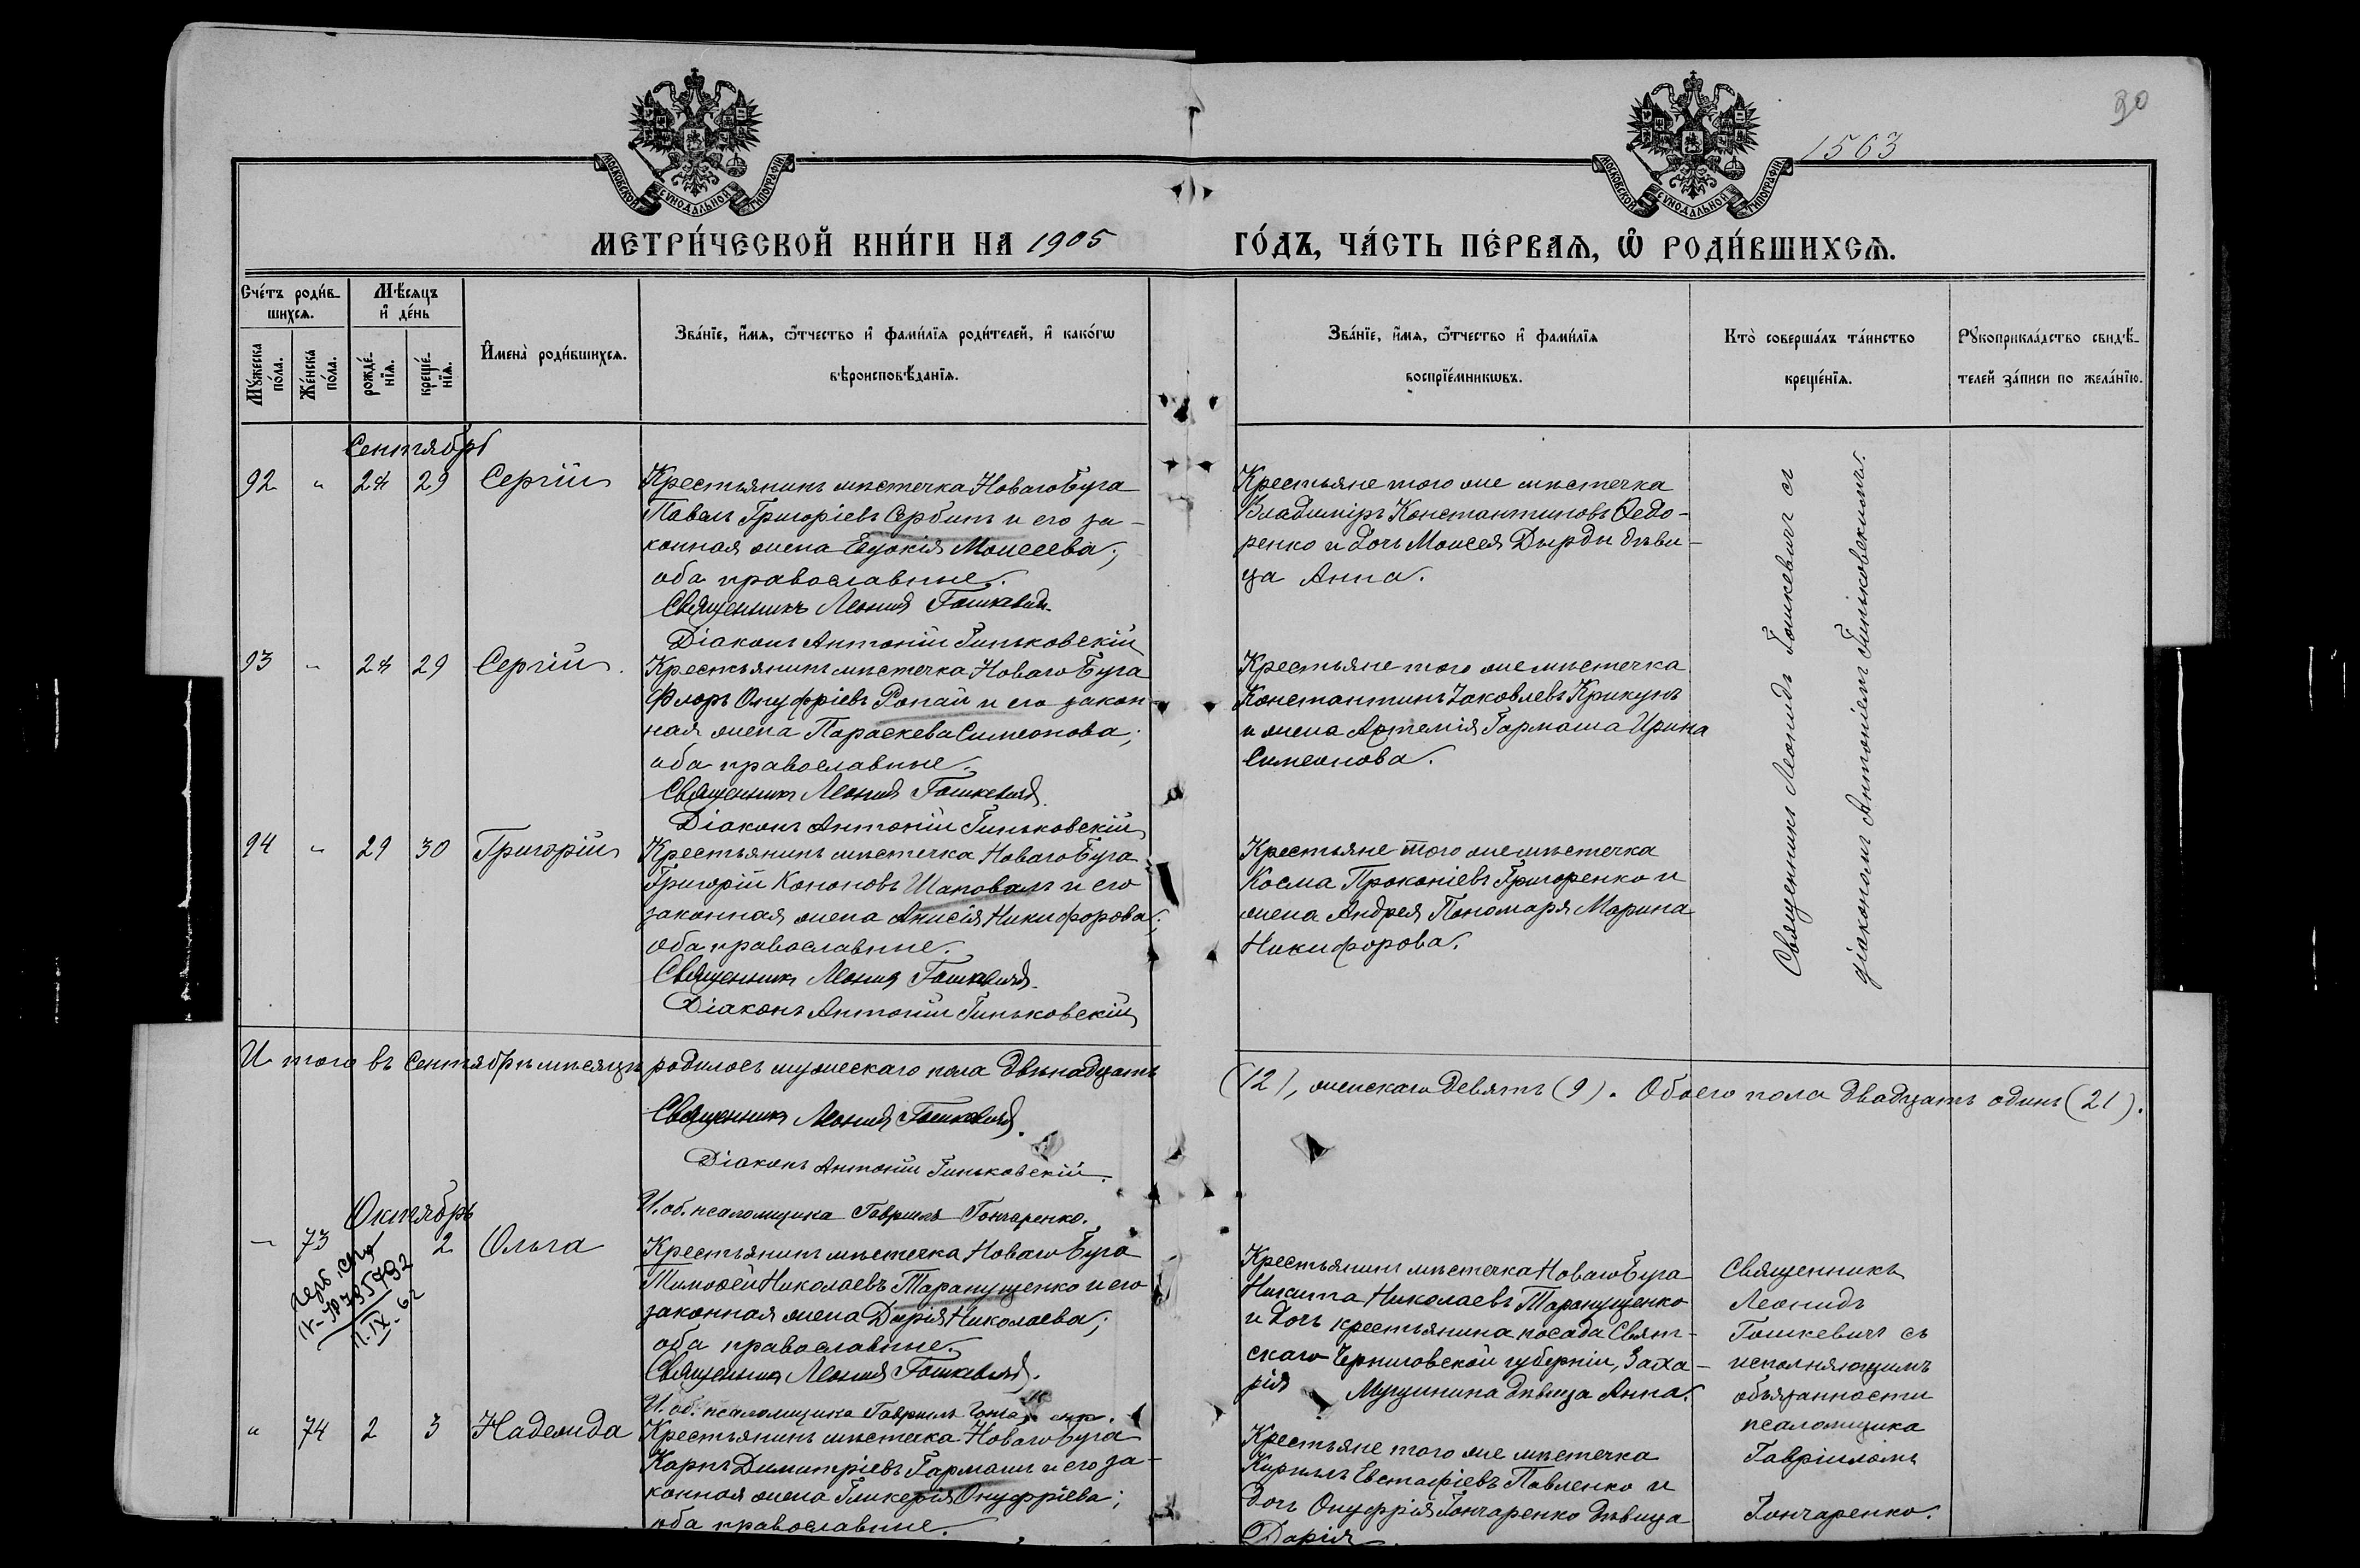 90
1563
МОСКОВСКОЙ СУНОДАЛЬНОЙ ТИПОГРАФІИ
МОСКОВСКОЙ СУНОДАЛЬНОЙ ТИПОГРАФІИ
МЕТРИ́ЧЕСКОЙ КНИ́ГИ НА 1905
ГО́ДЪ, ЧА́СТЬ ПЕ́РВАѦ, Ѡ РОДИ́ВШИХСѦ.
Сче́тъ роди́в-
шихсѧ.
Му́жеска
по́ла.
Же́нска
по́ла.
Мѣ́сѧцъ
и҆ де́нь
рожде́-
нїѧ.
креще́-
нїѧ.
И҆мена̀ роди́вшихсѧ.
Зва́нїе, и҆́мѧ, ѻ҆́тчество и҆ фами́лїѧ роди́телей, и҆ како́гѡ
вѣроисповѣ́данїѧ.
Зва́нїе, и҆́мѧ, ѻ҆́тчество и҆ фами́лїѧ
воспрїе́мникѡвъ.
Кто̀ соверша́лъ та́инство
креще́нїѧ.
Рꙋкоприкла́дство свидѣ́-
телей за́писи по жела́нїю.
Сентябрь
92 " 24 29 Сергій
Крестьянинъ мѣстечка Новаго Буга
Павелъ Григоріевъ Сербинъ и его за-
конная жена Евдокія Моисеева;
оба православные.
Священникъ Леонидъ Гошкевичъ.
Діаконъ Антоній Гиньковскій
Крестьяне того же мѣстечка
Владиміръ Константиновъ Ѳедо-
ренко и дочь Моисея Дырды дѣви-
ца Анна.
Священникъ Леонидъ Гошкевичъ съ
діакономъ Антоніемъ Гиньковскимъ.
93 " 24 29 Сергій.
Крестьянинъ мѣстечка Новаго Буга
Флоръ Онуфріевъ Ропай и его закон-
ная жена Параскева Симеонова;
оба православные.
Священникъ Леонидъ Гошкевичъ.
Діаконъ Антоній Гиньковскій
Крестьяне того же мѣстечка
Константинъ Іаковлевъ Крикунъ
и жена Артемія Гармаша Ирина
Симеонова.
94 " 29 30 Григорій
Крестьянинъ мѣстечка Новаго Буга
Григорій Кононовъ Шаповалъ и его
законная жена Анисія Никифорова;
оба православные.
Священникъ Леонидъ Гошкевичъ.
Діаконъ Антоній Гиньковскій
Крестьяне того же мѣстечка
Косма Прокопіевъ Григоренко и
жена Андрея Пономаря Марина
Никифорова.
И того въ Сентябрѣ мѣсяцѣ родилось мужескаго пола двѣнадцать
(12), женскаго девять (9). Обоего пола двадцать одинъ (21).
Священникъ Леонидъ Гошкевичъ.
Діаконъ Антоній Гиньковскій.
И. об. псаломщика Гавріилъ Гончаренко.
Октябрь
– 73 2 Ольга
11.IX.62
Крестьянинъ мѣстечка Новаго Буга
Тимоѳей Николаевъ Таранущенко и его
законная жена Дарія Николаева;
оба православные.
Священникъ Леонидъ Гошкевичъ.
И. об. псаломщика Гавріилъ
Крестьянинъ мѣстечка Новаго Буга
Никита Николаевъ Таранущенко
и дочь крестьянина посада Свят-
скаго Черниговской губерніи, Заха-
рія Мугинина дѣвица Анна.
Священникъ
Леонидъ
Гошкевичъ съ
исполняющимъ
обязанности
псаломщика
Гавріиломъ
Гончаренко.
" 74 2 3 Надежда
Крестьянинъ мѣстечка Новаго Буга
Карпъ Димитріевъ Гармашъ и его за-
конная жена Гликерія Онуфріева;
оба православные.
Крестьяне того же мѣстечка
Кириллъ Евстафіевъ Павленко и
дочь Онуфрія Гончаренко дѣвица
Дарія